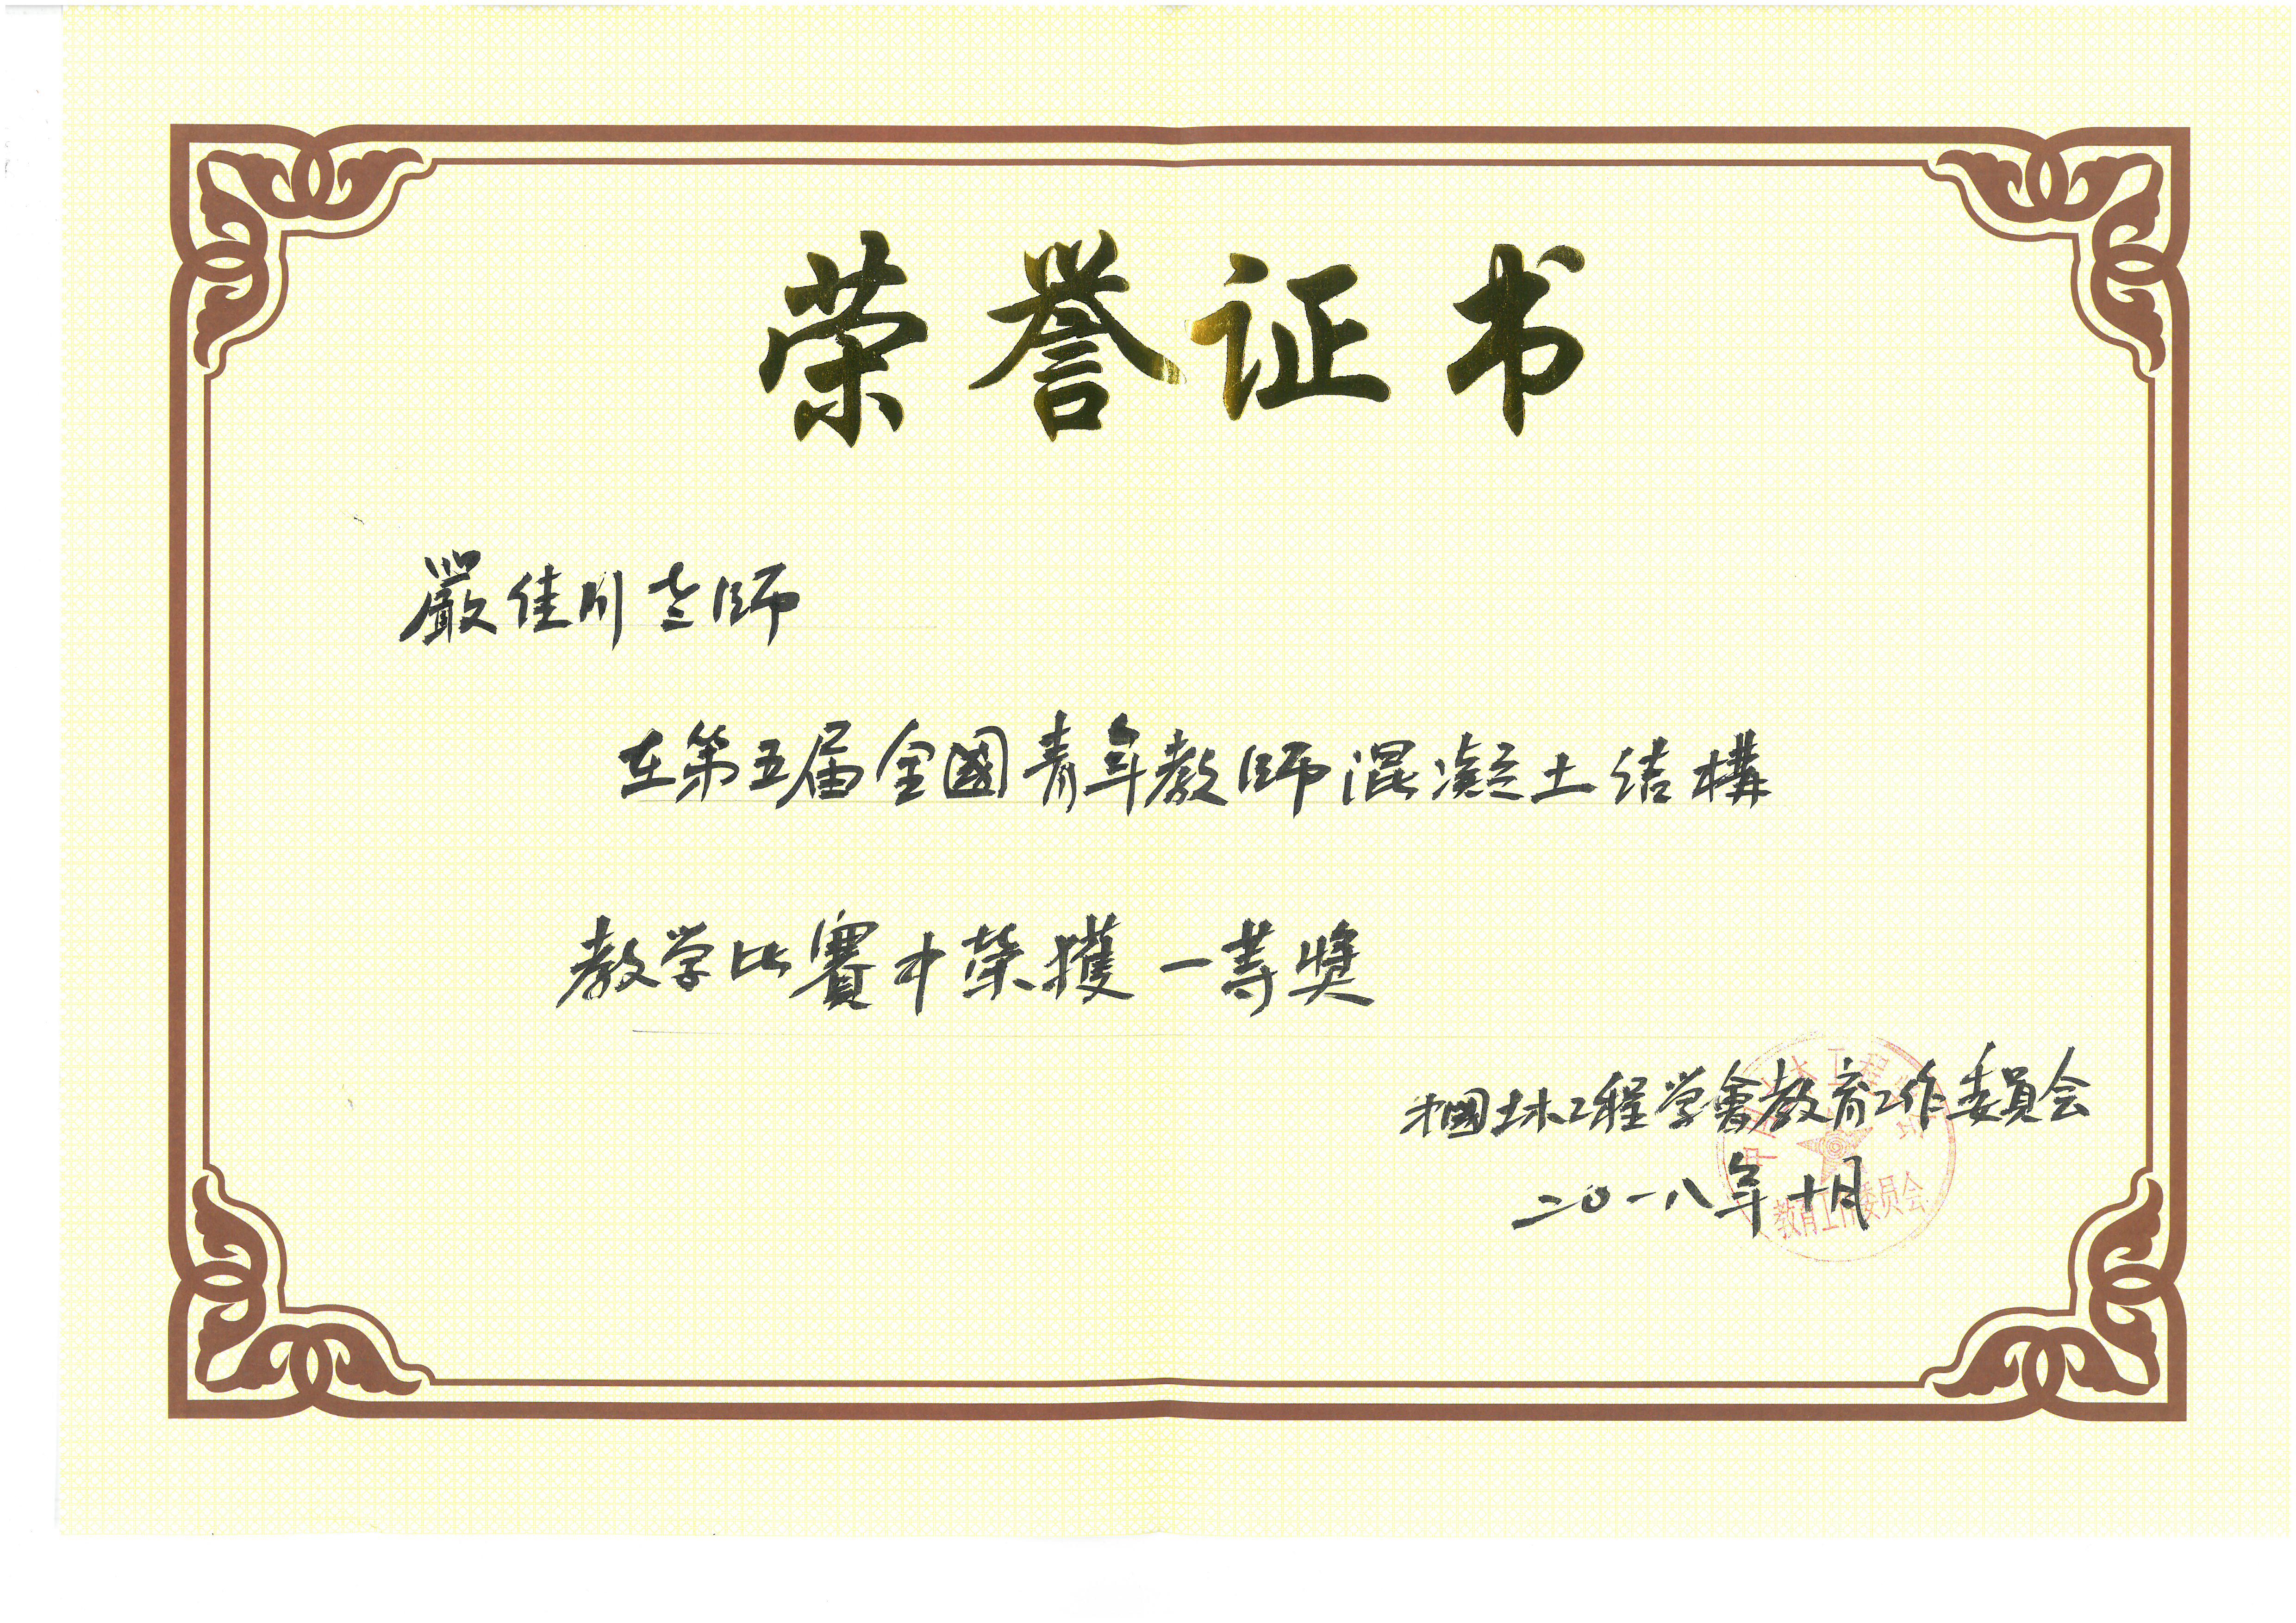 荣誉证书
嚴佳川老师
在第五届全國青年教师混凝土结構
教学比賽中荣獲一等奨
中國土木工程学會教育工作委員会
二〇一八年十月
教育工作委员会